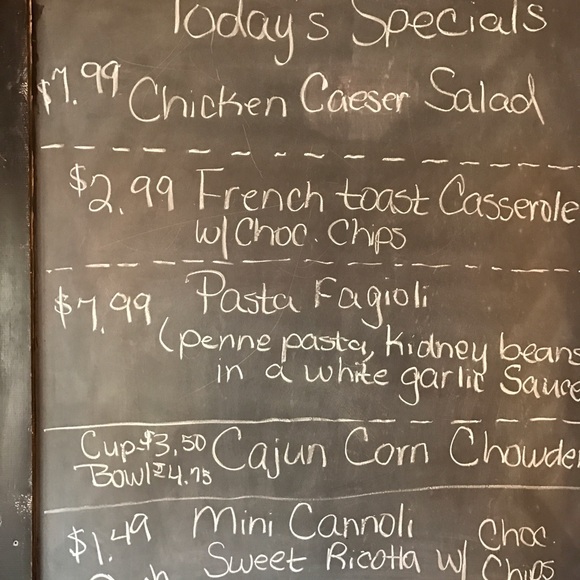 Today's Specials
$7.99 Chicken Caeser Salad
$2.99 French toast Casserole
w/ Choc. Chips
$7.99 Pasta Fagioli
(penne pasta, kidney beans
in a white garlic Sauce
Cup-$3.50 Cajun Corn Chowder
Bowl $4.75
$1.49 Mini Cannoli Choc.
Sweet Ricotta w/ Chips